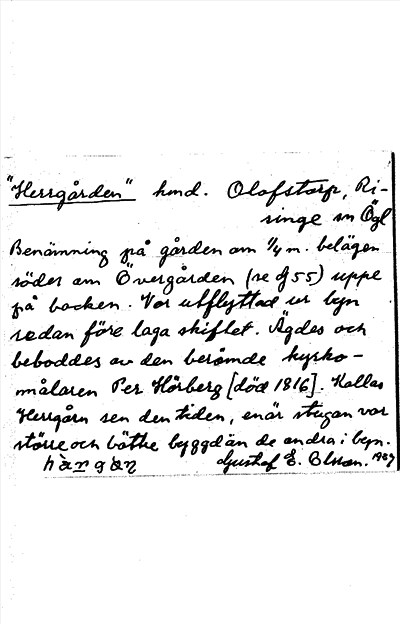 "Herrgården" hmd. Olofstorp, Ri-
singe sn Ögl
Benämning på gården om 1/4 m. belägen
söder om Övergården (se g 55) uppe
på backen. Var utflyttad ur byn
redan före laga skiftet. Ägdes och
beboddes av den berömde kyrko-
målaren Per Hörberg [död 1816]. Kallas
Herrgårn sen den tiden, enär stugan var
större och bättre byggd än de andra i byn.
hàrgàn̥ Gustaf E. Olsson. 1937